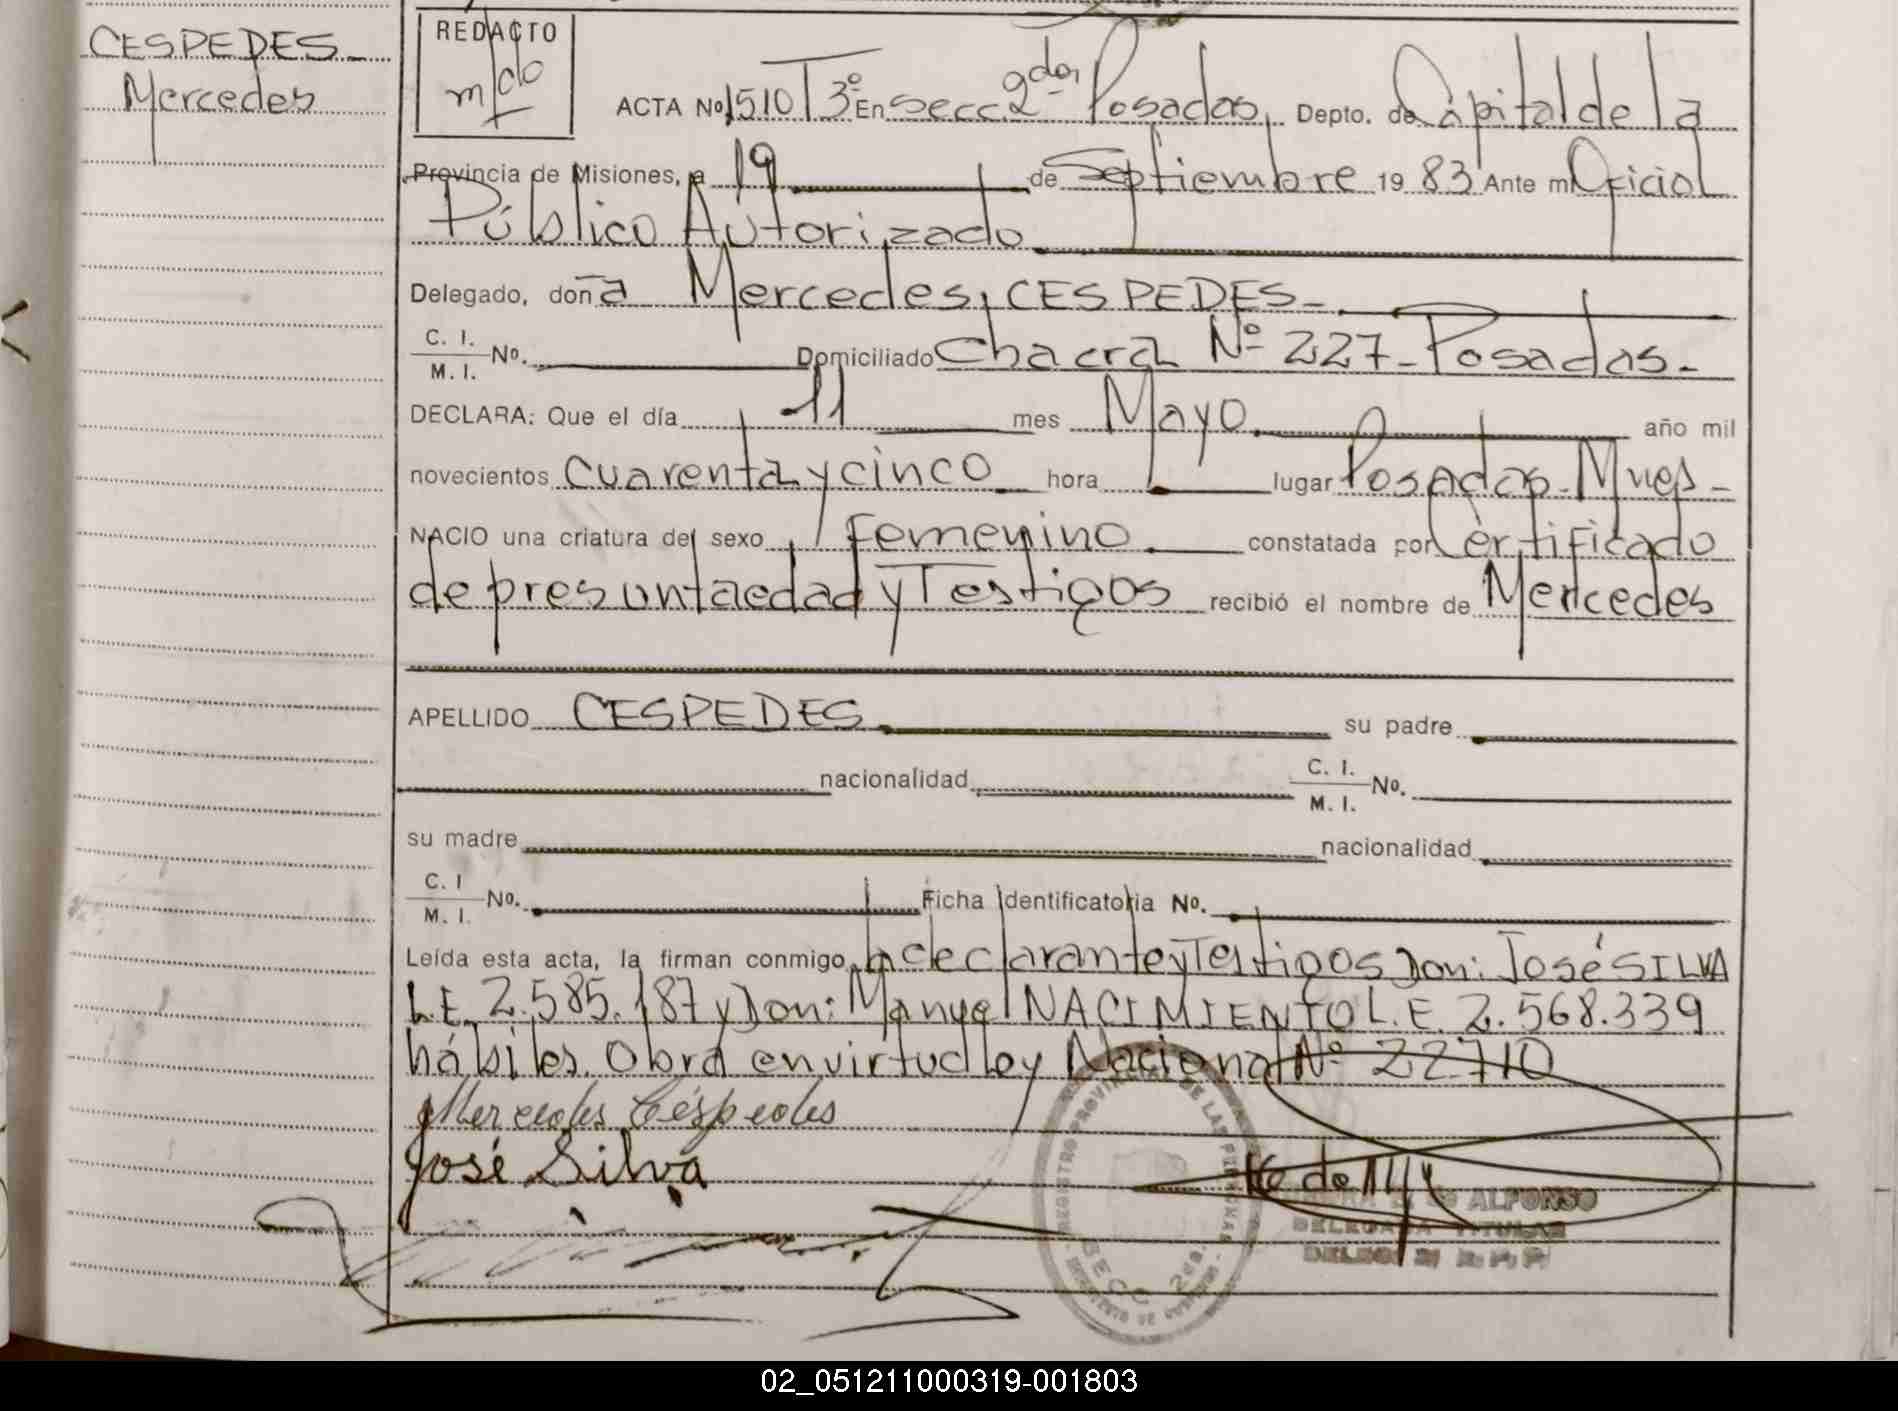 CESPEDES
Mercedes
REDACTO
ACTA No. 1510 T 3º En Secc. 2da. Posadas, Depto. de Capital de la
Provincia de Misiones, a 19 de Septiembre 19 83 Ante mi Oficial
Público Autorizado
Delegado, doña Mercedes, CESPEDES.
C. I.
M. I. No. Domiciliado Chacra Nº 227 - Posadas.
DECLARA: Que el día 11 mes Mayo año mil
novecientos cuarenta y cinco hora lugar Posadas - Mnes -
NACIO una criatura del sexo Femenino constatada por Certificado
de presunta edad y Testigos recibió el nombre de Mercedes
APELLIDO CESPEDES su padre
nacionalidad C. I. M. I. No.
su madre nacionalidad
C. I M. I. No. Ficha Identificatoria No.
Leída esta acta, la firman conmigo la declarante y Testigos Don: José SILVA
L.E. 2.585.187 y Don: Manuel NACIMIENTO L.E. 2.568.339
hábiles. Obra en virtud ley Nacional Nº 22710
Mercedes Céspedes
José Silva
REGISTRO PROVINCIAL DE LAS PERSONAS
SECC. 2da.
ALFONSO
DELEGADA TITULAR
02_051211000319-001803